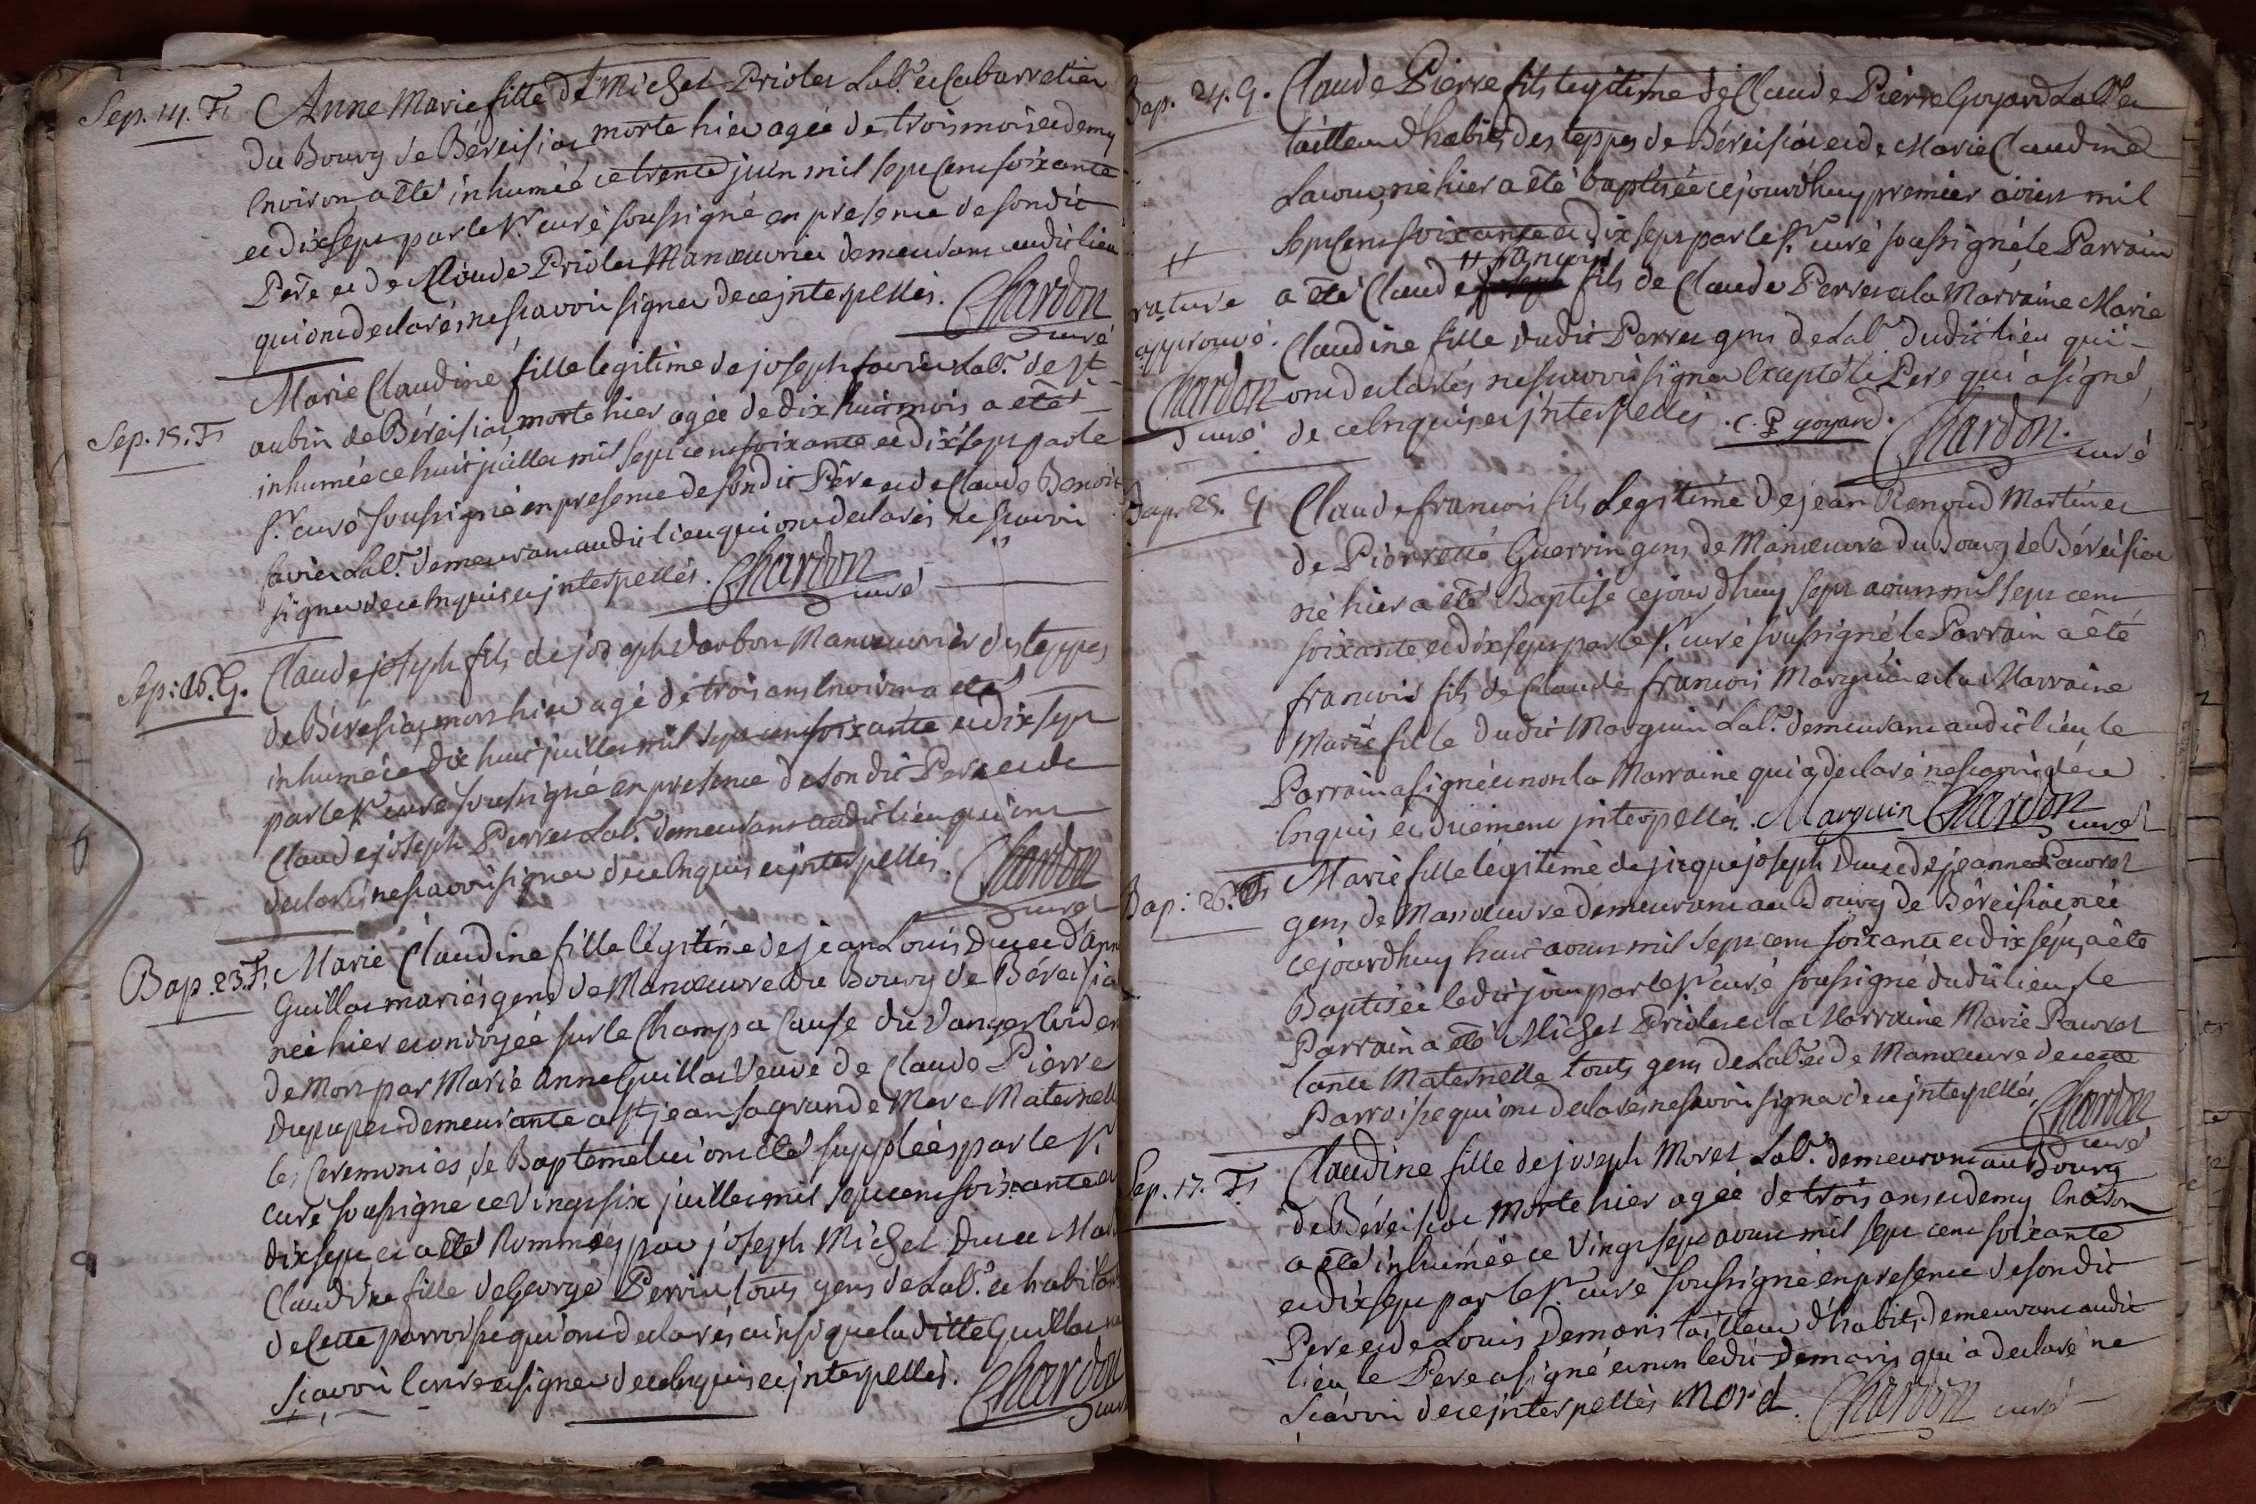 Sep. 14. F. Anne Marie fille de Michel Priolet Lab.r et Cabarretier
du Bourg de Béreisiat morte hier agée de trois mois et demy
Environ, a été inhumée ce trente juin mil sept cent soixante
et dix sept par le Sr. curé soussigné en presence de son dit
Pere et de Claude Priolet Manœuvrier demeurant audit lieu
qui ont declarés ne scavoir signer de ce interpellés. Chardon
curé
Sep. 15. F. Marie Claudine fille legitime de joseph favier Lab.r de St
aubin de Béreisiat morte hier agée de dix huit mois a été
inhumée ce huit juillet mil sept cent soixante et dix sept par le
Sr. curé soussigné en presence de son dit Pére et de Claude Benoit
favier Lab.r demeurant audit lieu qui ont declarés ne scavoir
signer de ce Enquis et interpellés. Chardon
curé
Sep: 16. G. Claude joseph fils de joseph Varbon Manœuvrier des teppes
de Béresiat, mort hier agé de trois ans Environ a eté
inhumé ce dix huit juillet mil sept cent soixante et dix sept
par le Sr. curé soussigné en presence de son dit Pere et de
Claude joseph Perret Lab.r demeurant audit lieu qui ont
declarés ne scavoir signer de ce Enquis et interpellés. Chardon
curé
Bap. 23. F. Marie Claudine fille légitime de jean Louis Duc et d'Anne
Guillot mariés gens de Manœuvre du Bourg de Béreisiat
née hier et ondoyée sur le Champ a Cause du Danger Evident
de Mort par Marie Anne Guillot Veuve de Claude Pierre
Dupupet demeurante a St jean sa grande Mere Maternelle
les Ceremonies de Bapteme lui ont été suppléés par le Sr.
curé soussigné ce Vingt six juillet mil sept cent soixante et
dix sept et a été Nommée par joseph Michel Duc et Marie
Claudine fille de George Perrin touts gens de Lab.r et habitants
de Cette parroisse qui ont declarés ainsi que la ditte Guillot ne
scavoir Ecrire et signer de ce Enquis et interpellés. Chardon
curé
Bap. 24. G. Claude Pierre fils legitime de Claude Pierre Goyard Lab.r et
tailleur d'habits des teppes de Béreisiat et de Marie Claudine
né hier a été baptisée ce jourdhuy premier aoust mil
sept cent soixante et dix sept par le Sr. curé soussigné, le Parrain
# francois
a été Claude joseph fils de Claude Perret et la Marraine Marie
#
rature
approuvé.
Chardon
curé
Claudine fille dudit Perret gens de Lab.r dudit lieu qui
ont declarés ne scavoir signer Excepté le Pere qui a signé
de ce Enquis et interpellés. C. P goyard. Chardon.
curé
Bap. 25. G Claude francois fils Légitime de jean Renoud Martin et
de Pierrette Guerrin gens de Manœuvre du Bourg de Béreisiat
né hier a été Baptisé ce jourdhuy sept aoust mil sept cent
soixante et dix sept par le Sr. curé soussigné, le Parrain a été
francois fils de Claude francois Marguin et la Marraine
Marie fille dudit Marguin Lab.r demeurant audit lieu le
Parrain a signé et non la Marraine qui a declaré ne scavoir de ce
Enquis et duement interpellés. Marguin Chardon
curé
Bap: 26. F. Marie fille légitime de jacque joseph Duc et de jeanne Pauvret
gens de Manœuvre demeurant au Bourg de Béreisiat née
ce jourdhuy huit aoust mil sept cent soixante et dix sept, a été
Baptisée ledit jour par le Sr. curé soussigné dudit lieu le
Parrain a été Michel Priolet et la Marraine Marie Pauvret
tante Maternelle touts gens de Lab.r et de Manœuvre de cette
Parroisse qui ont declarés ne scavoir signer de ce interpellés. Chardon
curé
Sep. 17. F. Claudine fille de joseph Morel Lab.r demeurant au Bourg
de Béreisiat Morte hier agée de trois ans et demy Environ
a été inhumée ce Vingt sept aoust mil sept cent soixante
et dix sept par le Sr. curé soussigné en presence de son dit
Pere et de Louis Demaris tailleur d'habits, demeurant audit
lieu le Pere a signé et non ledit Demaris qui a declaré ne
scavoir de ce interpellés Morel. Chardon curé